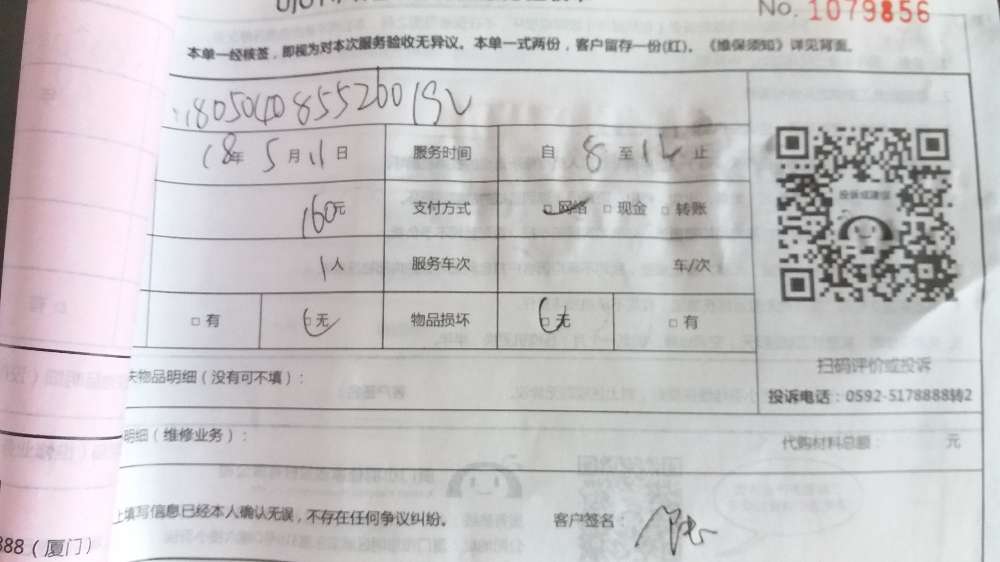 No. 1079856
本单一经核签，即视为对本次服务验收无异议。本单一式两份，客户留存一份(红)。《维保须知》详见背面。
18年5月11日 服务时间 自8至12止
160元 支付方式 □网络 □现金 □转账
投诉或建议
1人 服务车次 车/次
□有 □无 物品损坏 □无 □有
扫码评价或投诉
物品明细（没有可不填）：
投诉电话：0592-5178888转2
明细（维修业务）： 代购材料总额： 元
上填写信息已经本人确认无误，不存在任何争议纠纷。 客户签名：
888（厦门）